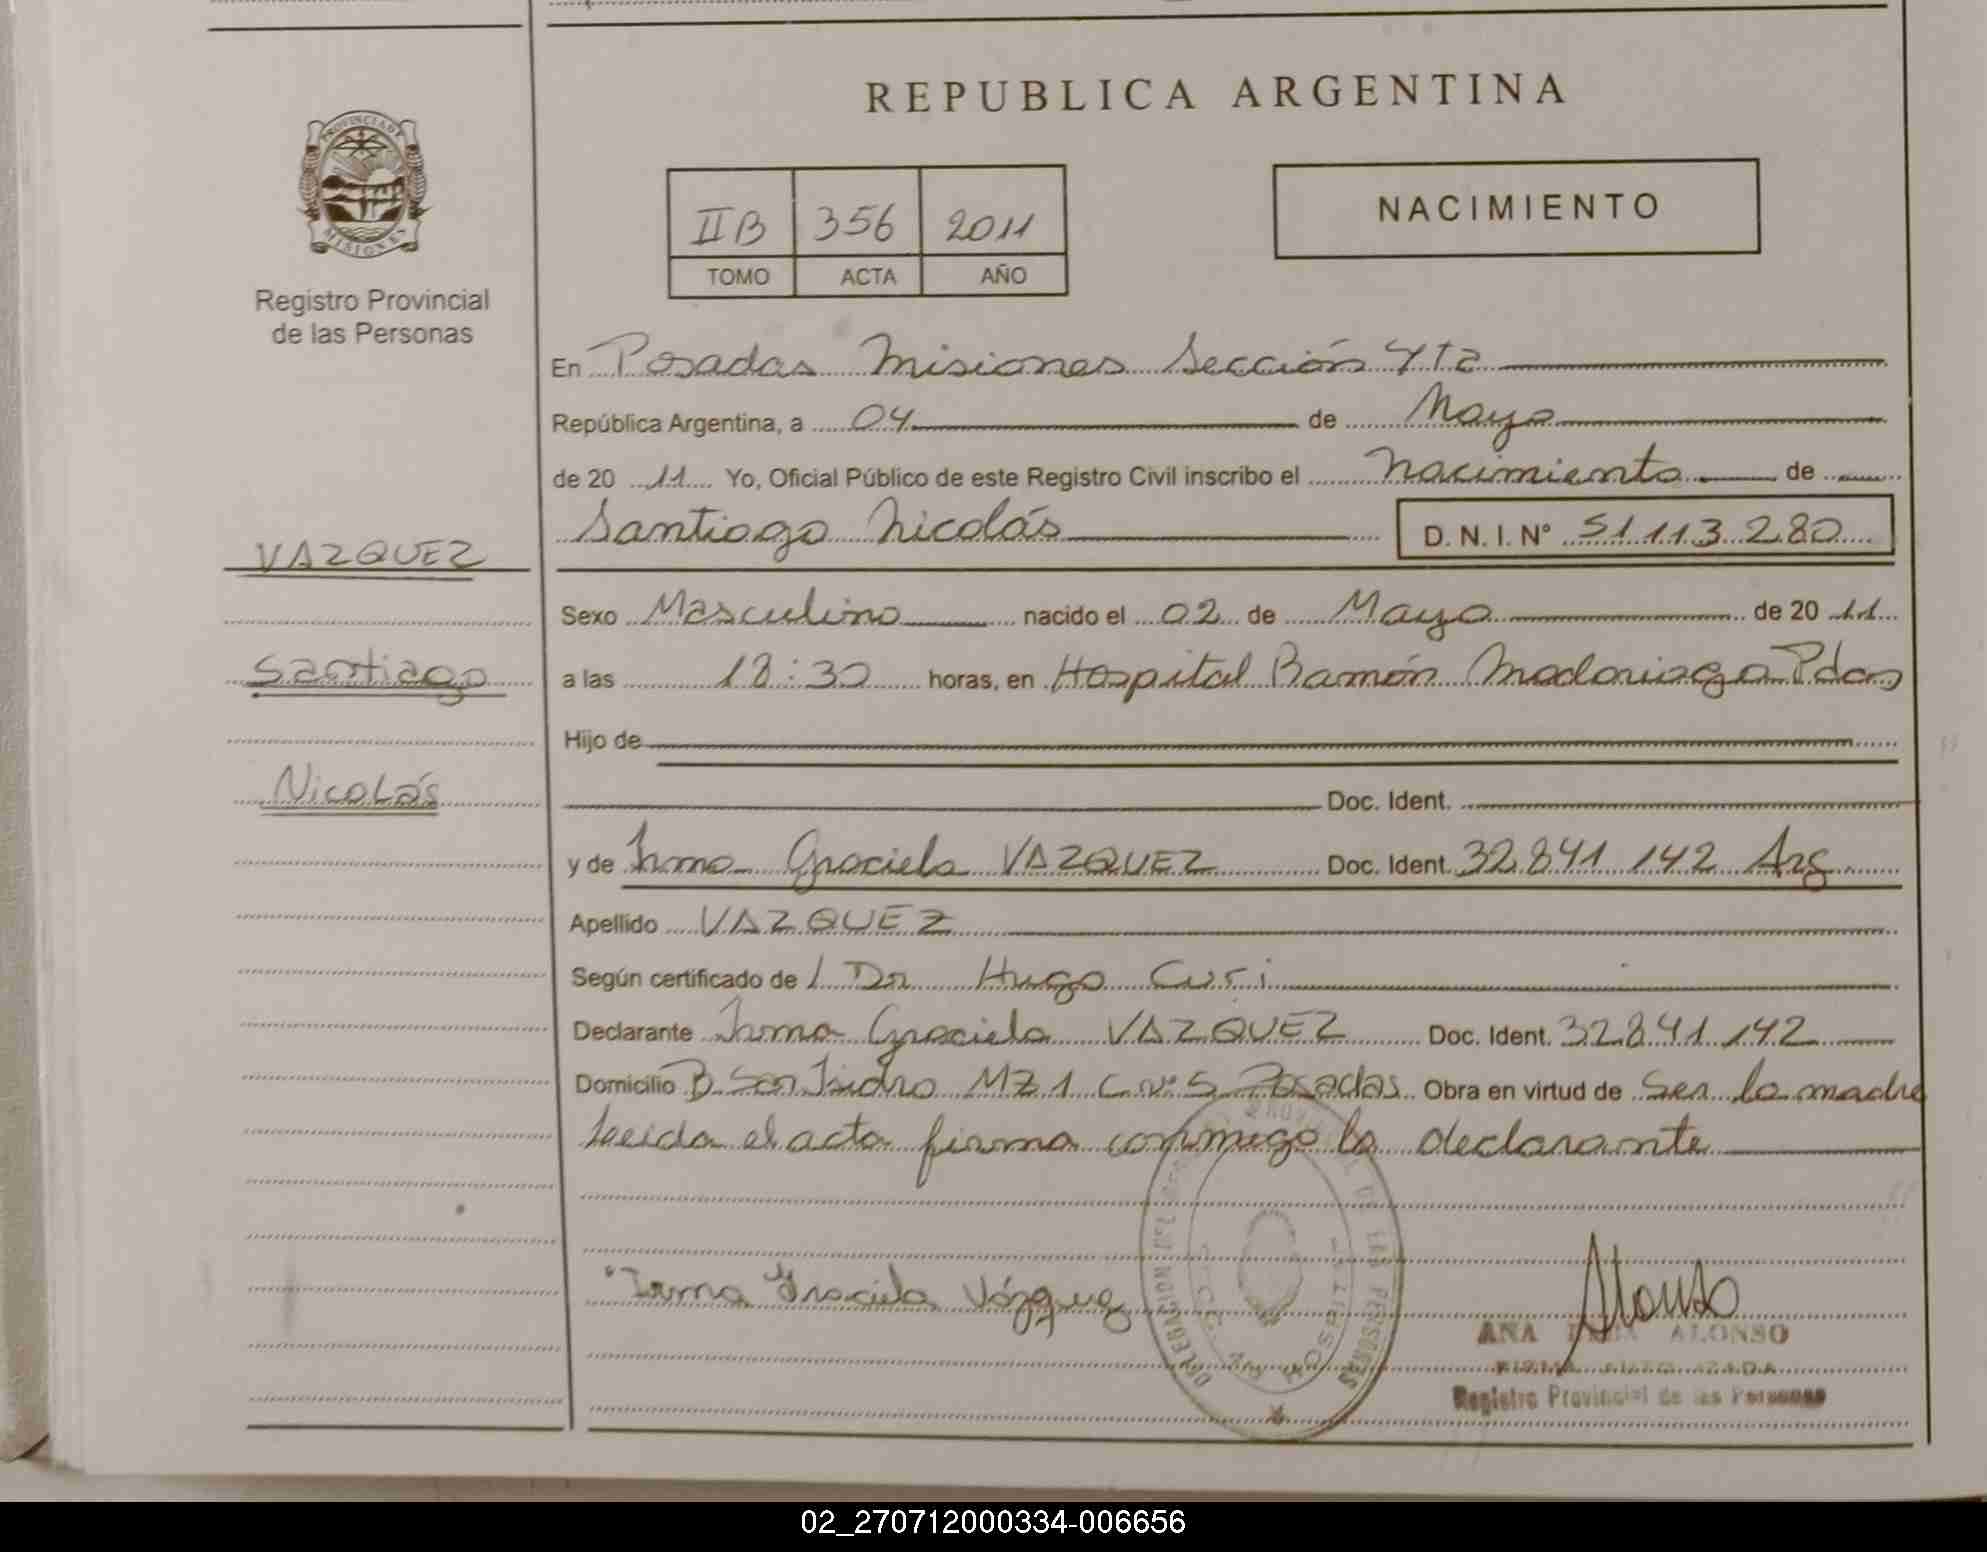 REPUBLICA ARGENTINA
PROVINCIA DE
MISIONES
Registro Provincial
de las Personas
II B 356 2011
TOMO ACTA AÑO
NACIMIENTO
En Posadas Misiones Sección 4ta
República Argentina, a 04 de Mayo
de 20 11 Yo, Oficial Público de este Registro Civil inscribo el nacimiento de
Santiago Nicolás D. N. I. N° 51.113.280
VAZQUEZ
Santiago
Nicolás
Sexo Masculino nacido el 02 de Mayo de 20 11
a las 18:30 horas, en Hospital Ramón Madariaga Pdas
Hijo de
Doc. Ident.
y de Irma Graciela VAZQUEZ Doc. Ident. 32.841.142 Arg
Apellido VAZQUEZ
Según certificado de l Dr Hugo Curi
Declarante Irma Graciela VAZQUEZ Doc. Ident. 32.841.142
Domicilio B San Isidro MZ 1 C N° 5 Posadas Obra en virtud de Ser la madre
Leida el acta firma conmigo la declarante
Irma Graciela Vázquez
Alonso
DELEGACION DE LAS PERSONAS
HOSPITAL
ANA ALONSO
FIRMA AUTORIZADA
Registro Provincial de las Personas
02_270712000334-006656